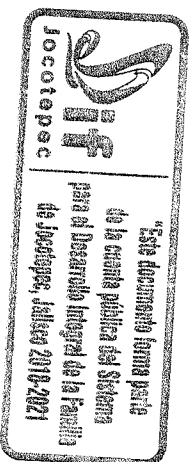 dif
Jocotepec
"Este documento forma parte
de la cuenta pública del sistema
para el Desarrollo Integral de la Familia
de Jocotepec, Jalisco 2018-2021